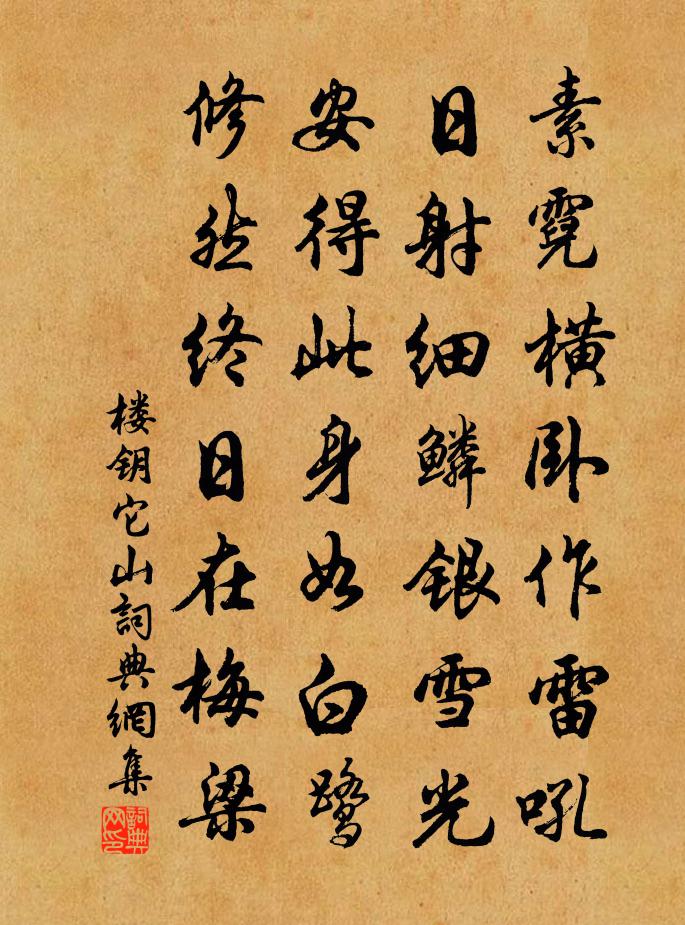 素霓横卧作雷吼
日射细鱗銀雪光
安得此身如白鷺
修然终日在梅梁
楼钥它山詞典網集
詞典网印